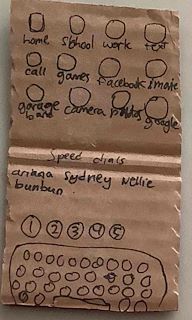 home School work text
call games Facebook imovie
garage band camera photos google
Speed dials
ariana Sydney Nellie
bunbun
1 2 3 4 5